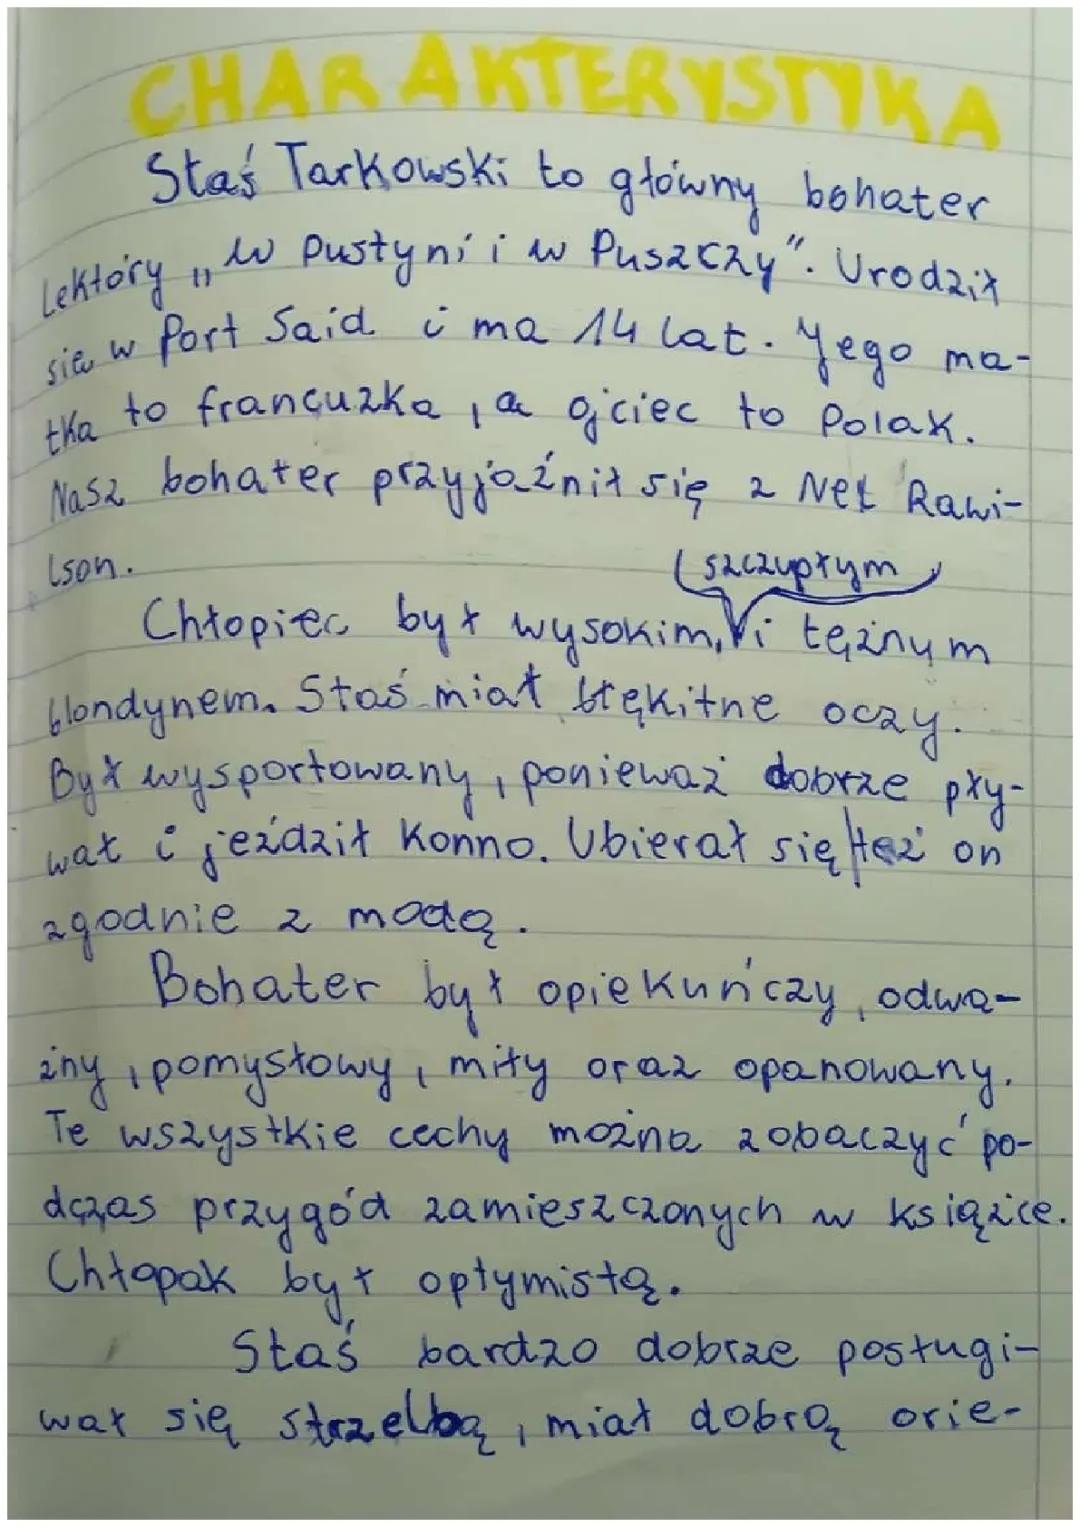 CHARAKTERYSTYKA
Staś Tarkowski to główny bohater
Lektóry „W pustyni i w Puszczy". Urodził
się w Port Said i ma 14 lat. Jego ma-
tka to francuzka, a ojciec to Polak.
Nasz bohater przyjaźnił się z Nel Rawi-
lson.
szczupłym
Chłopiec był wysokim, i tężnym
blondynem. Staś miał błękitne oczy.
Był wysportowany, ponieważ dobrze pły-
wał i jeździł konno. Ubierał się też on
zgodnie z modą.
Bohater był opiekuńczy, odwa-
żny, pomysłowy, miły oraz opanowany.
Te wszystkie cechy można zobaczyć po-
dczas przygód zamieszczonych w książce.
Chłopak był optymistą.
Staś bardzo dobrze posługi-
wał się strzelbą, miał dobrą orie-